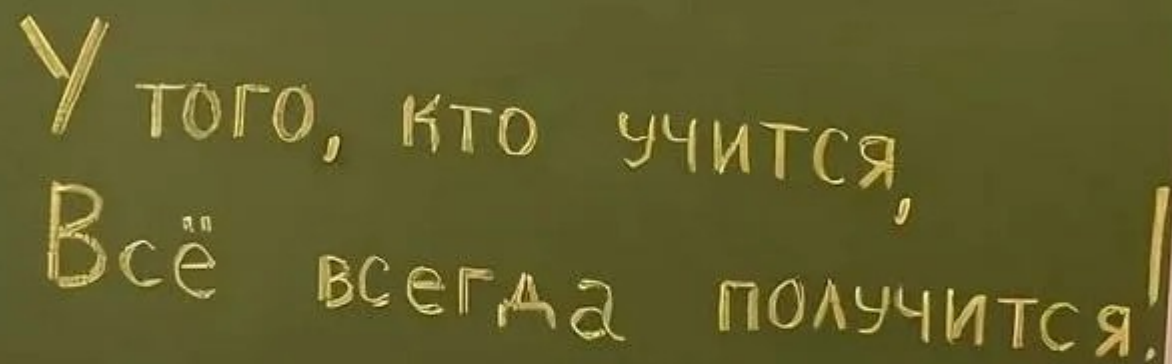 У того, кто учится,
Всё всегда получится!